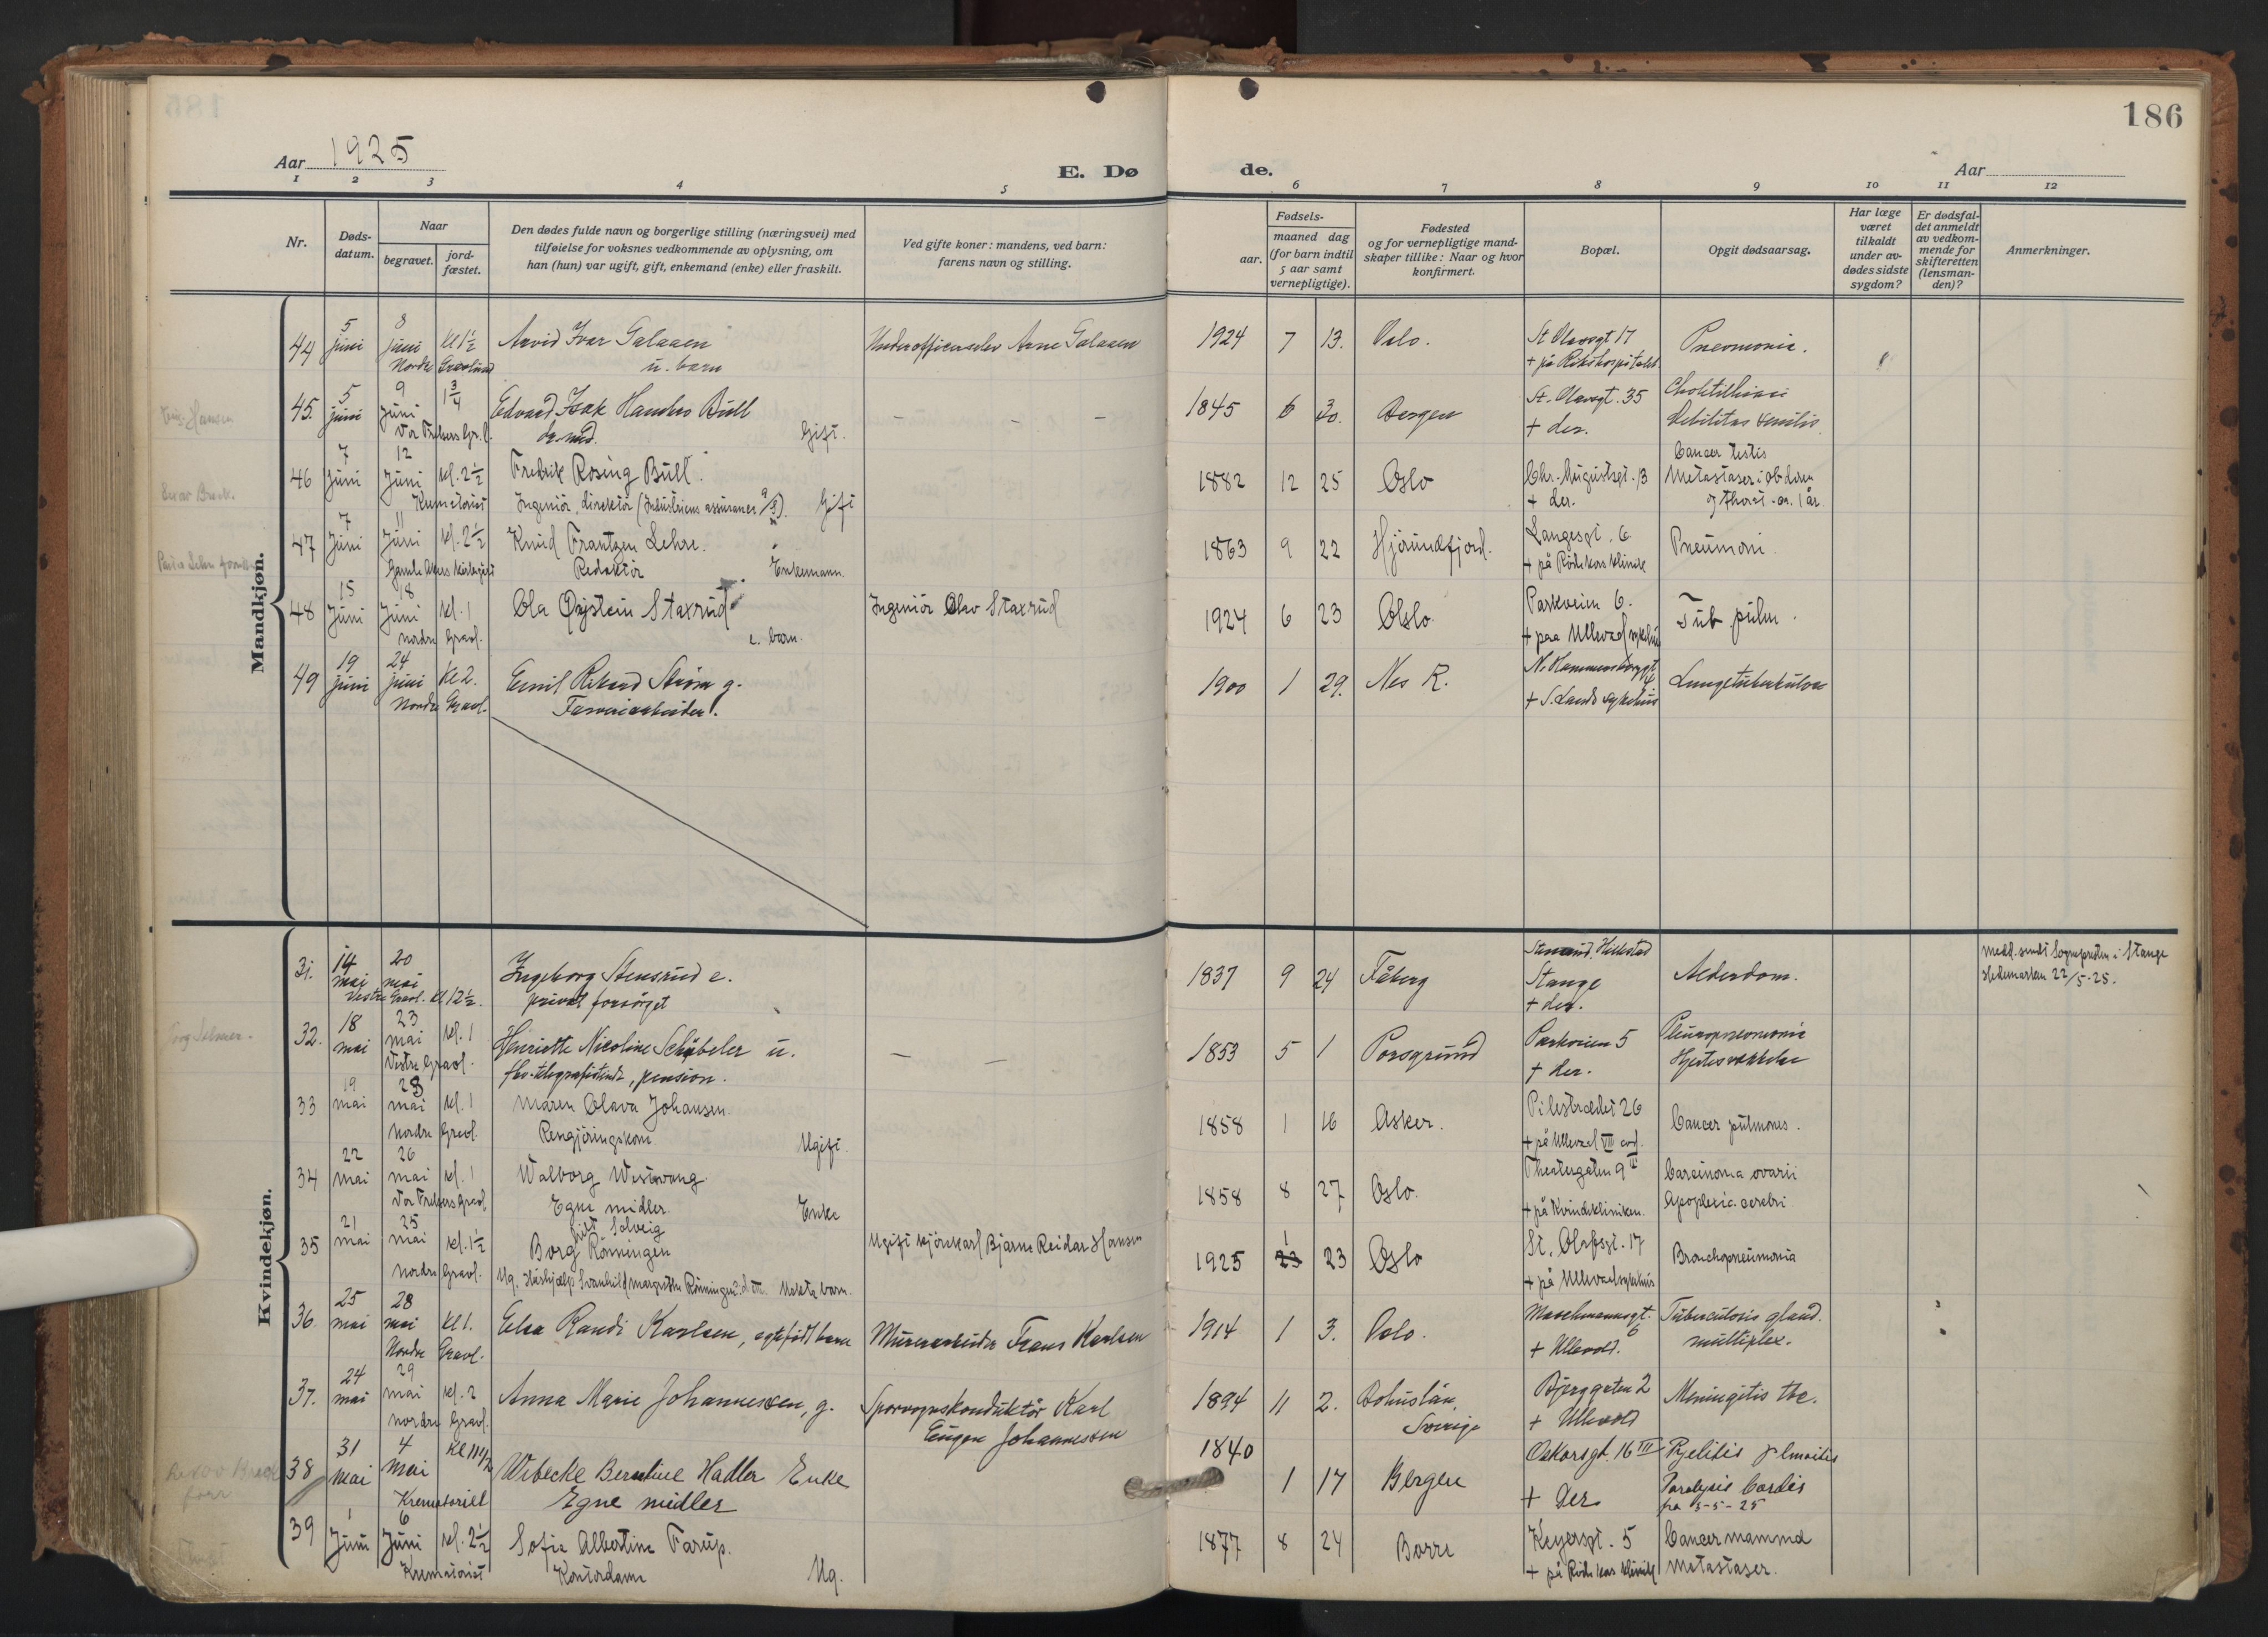 186
Aar 1925
E. Dø
de.
Aar
1 2 3 4 5 6 7 8 9 10 11 12
Nr.
Døds-
datum.
Naar
begravet.
jord-
fæstet.
Den dødes fulde navn og borgerlige stilling (næringsvei) med
tilføielse for voksnes vedkommende av oplysning, om
han (hun) var ugift, gift, enkemand (enke) eller fraskilt.
Ved gifte koner: mandens, ved barn:
farens navn og stilling.
Fødsels-
aar.
maaned dag
(for barn indtil
5 aar samt
vernepligtige).
Fødested
og for vernepligtige mand-
skaper tillike: Naar og hvor
konfirmert.
Bopæl.
Opgit dødsaarsag.
Har læge
været
tilkaldt
under av-
dødes sidste
sygdom?
Er dødsfal-
det anmeldt
av vedkom-
mende for
skifteretten
(lensman-
den)?
Anmerkninger.
Mandkjøn.
44 5 juni 8 juni Kl 1½ Arvid Ivar Galaaen Underofficerselev Arne Galaaen 1924 7 13. Oslo. St Olavsgt 17 Pneomonie.
Nordre Gravlund u. barn + på Rikshospitalet
45. 5 juni 9 juni 1¾ Edvard Isak Hambro Bull — — — 1845 6 30. Bergen St. Olavsgt. 35
Vor Frelsers Gr.l. dr. med. Gift. + der. Debilitas senilis.
46 7 Juni 12 Juni kl. 2½ Fredrik Rosing Bull. 1882 12 25 Oslo Chr. Augustsgt. 13 Cancer testis
Metastaser i abdomen
Krematoriet Ingeniør, direktør (Industriens assurance Gift + der. og thorax - ca. 1 år.
47 7 Juni 11 Juni kl. 2½ Knud Frantzen Lehre. 1863 9 22 Hjørundfjord. Langesgt. 6. Pneumoni.
Gamle Akers kirkegård Redaktør Enkemann. + på Røde kors klinik
48 15 Juni 18 Juni kl. 1 Ola Øystein Staxrud Ingeniør Olav Staxrud 1924 6 23 Oslo. Parkveien 6. Tub. pulm.
nordre Gravl. e. barn. + paa Ullevaal sykehus
49 19 juni 24 juni Kl 2. Emil Rikard Strøm g. 1900 1 29. Nes R. N. Hammersborggt. Lungetuberkulose
Nordre Gravl. Farveriarbeider. + S. Lands sykehus
Kvindekjøn.
31. 14 mai 20 mai Ingeborg Stensrud e. 1837 9 24 Fåberg Stange Alderdom. Medd. sendt Sogneprесten i Stange
Hedemarken 22/5-25.
Vestre Gravl. Kl 12½. privat forsørget + der.
32. 18 mai 23 mai kl. 1 Henriette Nicoline Schübeler u. — — 1853 5 1 Porsgrund Parkveien 5 Pleuropneomonie
Vestre Gravl. fhv. telegrafistinde, pension. + der. Hjertesvækkelse
33 19 mai 23 mai kl. 1 Maren Olava Johansen. 1858 1 16 Asker. Pilestrædet 26 Cancer pulmones.
Nordre Gravl. Rengjøringskone Ugift. + på Ullevaal VIII avd.
34 22 mai 26 mai kl. 1 Walborg Westwang. 1858 8 27 Oslo. Theatergaten 9 Carcinoma ovarii
Vor Frelsers Gravl. Egne midler. Enke + på Kvindekliniken. Apoplexia cerebri
35 21 mai 25 mai kl. 1½ Borg Solveig Rønningen Ugift kjørekarl Bjarne Reidar Hansen 1925 1 23 Oslo St. Olafsgt. 17 Bronchopneumonia
nordre Gravl. Ug. Hushjælp Svanhild Margrethe Rønningen Uekte barn. + på Ullevaal sykehus
36. 25 mai 28 mai Kl 1. Elsa Randi Karlsen, egtefødt barn Murerarbeider Frans Karlsen 1914 1 3. Oslo. Maschmannsgt. 6 Tuberculosis gland.
Nordre Gravl. + Ullevold. multiplex.
37. 24 mai 29 mai kl. 2 Anna Marie Johannessen, g. Sporvognskonduktør Karl 1894 11 2. Bohuslän, Bjerggaten 2 Meningitis tbc.
nordre Gravl. Eugen Johannessen Sverige + Ullevold
38 31 mai 4 mai Kl 11½ Wibecke Berntine Hadler Enke 1840 1 17 Bergen Oskarsgt. 16 III Pyelitis
Krematoriet Egne midler + Der Paralysis Cordis
fra 5-5-25
39 1 Juni 6 Juni kl. 2½ Sofie Albertine Farup. 1877 8 24 Borre Keysersgt. 5 Cancer mamma
Krematoriet Kontordame Ug. + på Røde kors klinik Metastaser.